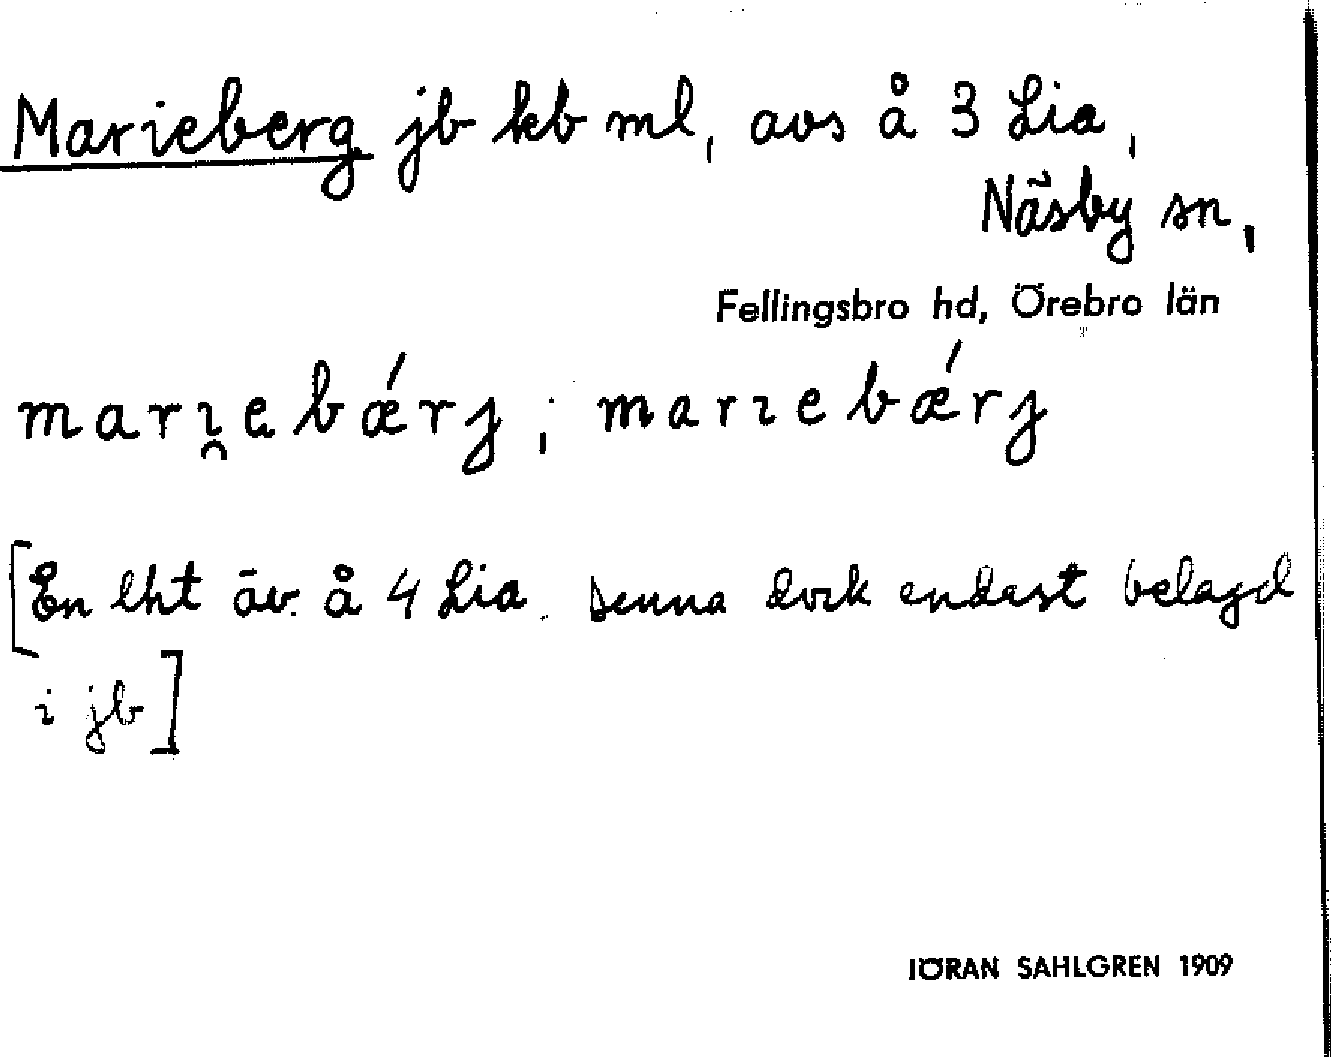 Marieberg jb kb ml, avs å 3 Lia,
Näsby sn,
Fellingsbro hd, Örebro län
marı̯ebǽrj; marıebǽrj
[En lht äv. å 4 Lia. Denna dock endast belagd
i jb]
JÖRAN SAHLGREN 1909